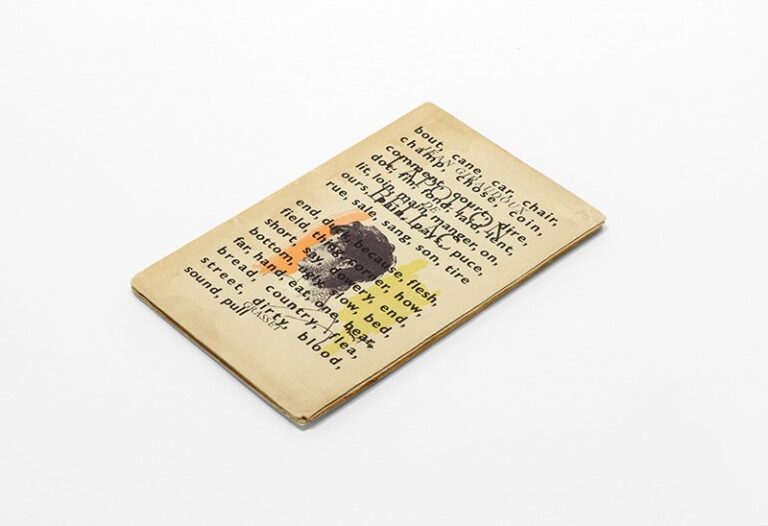 bout, cane, car, chair,
champ, chose, coin,
JEAN GIRAUDOUX
comment, cour, dire,
L'APOLLON
dot, fin, fond, laid, lent,
DE
lit, loin, main, manger, on,
BELLAC
ours, pain, pays, puce,
rue, sale, sang, son, tire
end, duck, because, flesh,
field, thing, corner, how,
short, say, dowery, end,
bottom, ugly, slow, bed,
far, hand, eat, one, bear,
bread, country, flea,
street, dirty, blood,
GRASSET
sound, pull